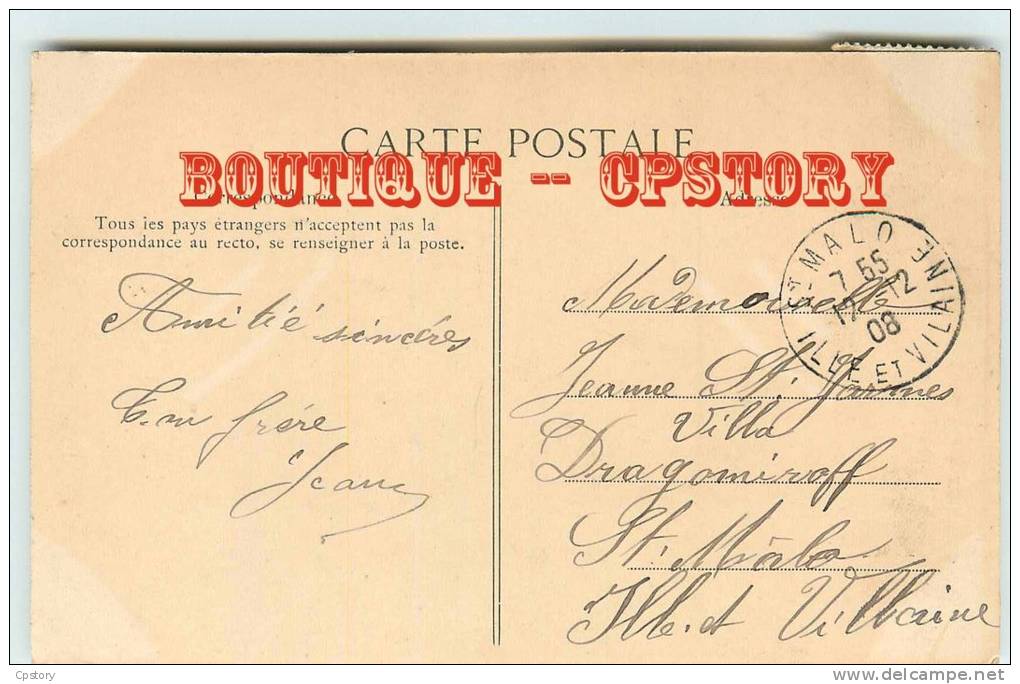 CARTE POSTALE
BOUTIQUE -- CPSTORY
Correspondance
Adresse
Tous les pays étrangers n'acceptent pas la
correspondance au recto, se renseigner à la poste.
Amitié sincères
frère
Jean
ST MALO
7 55
12 -12
08
ILLE ET VILAINE
Mademoiselle
Jeanne St. James
Villa
Dragomiroff
St. Mâlo
Ille et Villaine
Cpstory
www.delcampe.net